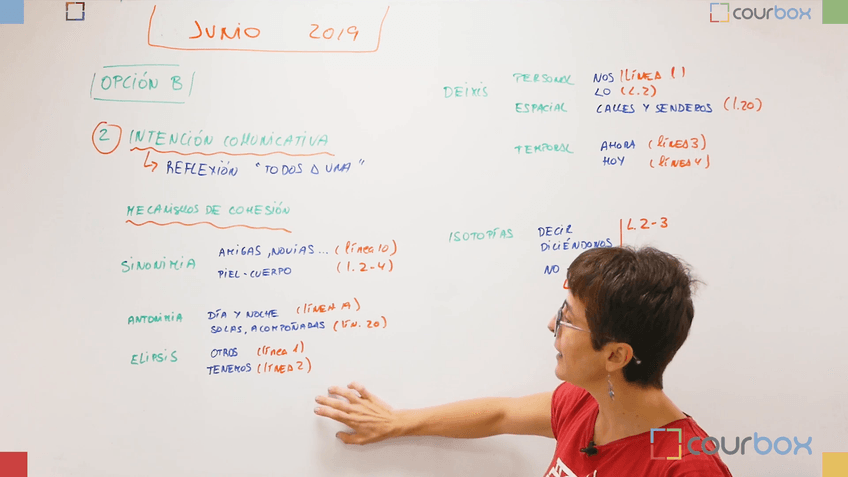 JUNIO 2019
OPCIÓN B
2 INTENCIÓN COMUNICATIVA
REFLEXIÓN "TODOS A UNA"
MECANISMOS DE COHESIÓN
SINONIMIA
AMIGAS, NOVIAS... (línea 10)
PIEL-CUERPO (l. 2-4)
ANTONIMIA
DÍA Y NOCHE (LÍNEA
SOLAS, ACOMPAÑADAS (LÍN. 20)
ELIPSIS
OTROS (línea 1)
TENEMOS (LÍNEA 2)
DEIXIS
PERSONAL NOS (LÍNEA 1)
LO (L.2)
ESPACIAL CALLES Y SENDEROS (l.20)
TEMPORAL AHORA (línea 3)
HOY (línea 4)
ISOTOPÍAS
DECIR
DICIÉNDONOS
L. 2-3
NO
courbox
courbox